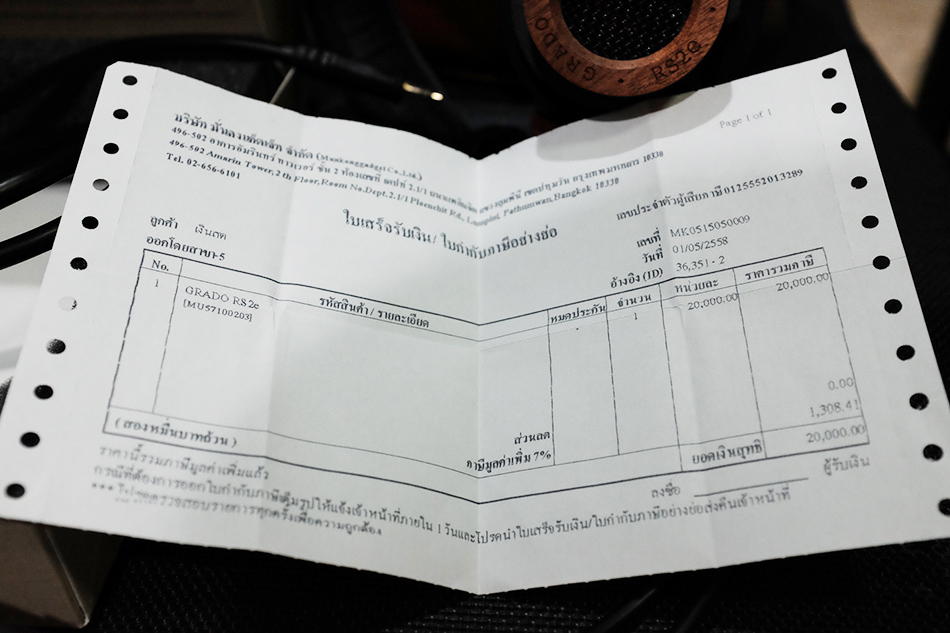 GRADO RS2e
Page 1 of 1
บริษัท มั่นคงแก็ดเจ็ท จำกัด (Munkonggadget Co.,Ltd.)
496-502 อาคารอัมรินทร์ ทาวเวอร์ ชั้น 2 ห้องเลขที่ เดปท์ 2.1/1 ถนนเพลินจิต แขวงลุมพินี เขตปทุมวัน กรุงเทพมหานคร 10330
496-502 Amarin Tower,2 th Floor,Room No.Dept.2.1/1 Ploenchit Rd., Lumpini, Pathumwan,Bangkok 10330
Tel. 02-656-6101
เลขประจำตัวผู้เสียภาษี 0125552013289
ใบเสร็จรับเงิน/ ใบกำกับภาษีอย่างย่อ
ลูกค้า เงินสด
เลขที่ MK0515050009
ออกโดยสาขา-5
วันที่ 01/05/2558
อ้างอิง (ID) 36,351 - 2
No. รหัสสินค้า / รายละเอียด หมดประกัน จำนวน หน่วยละ ราคารวมภาษี
1 GRADO RS2e 1 20,000.00 20,000.00
[MU57100203]
ส่วนลด 0.00
ภาษีมูลค่าเพิ่ม 7% 1,308.41
( สองหมื่นบาทถ้วน ) ยอดเงินสุทธิ 20,000.00
ราคานี้รวมภาษีมูลค่าเพิ่มแล้ว
ลงชื่อ ผู้รับเงิน
กรณีที่ต้องการออกใบกำกับภาษีเต็มรูปให้แจ้งเจ้าหน้าที่ภายใน 1 วันและโปรดนำใบเสร็จรับเงิน/ใบกำกับภาษีอย่างย่อส่งคืนเจ้าหน้าที่
*** โปรดตรวจสอบรายการทุกครั้งเพื่อความถูกต้อง